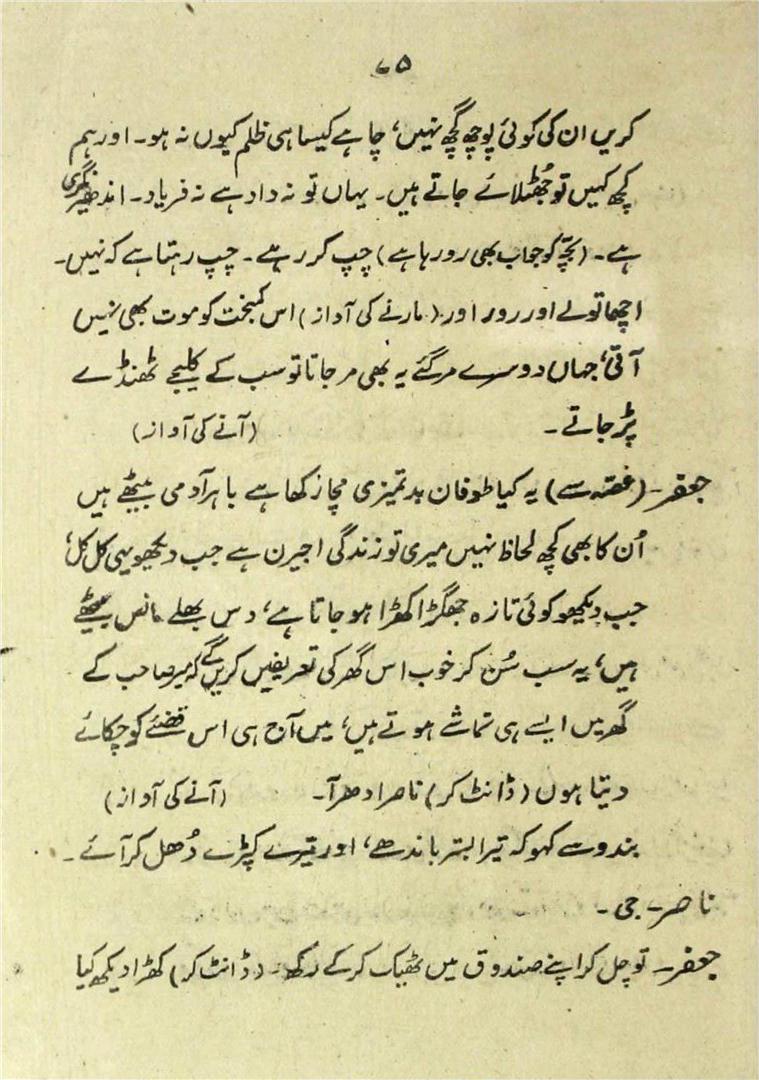 ۷۵
کریں ان کی کوئی پوچھ گچھ نہیں، چاہے کیسا ہی ظلم کیوں نہ ہو۔ اور ہم
کچھ کہیں تو جُھٹلائے جاتے ہیں۔ یہاں تو نہ داد ہے نہ فریاد۔ اندھیر نگری
ہے۔ (بچّہ کو جواب بھی رو رہا ہے) چپ کر رہے۔ چپ رہتا ہے کہ نہیں۔
اچھا تو لے اور رو، اور (مارنے کی آواز) اس کمبخت کو موت بھی نہیں
آتی، جہاں دوسرے مر گئے یہ بھی مر جاتا تو سب کے کلیجے ٹھنڈے
پڑ جاتے۔ (آنے کی آواز)
جعفر۔ (غصّہ سے) یہ کیا طوفان بدتمیزی مچا رکھا ہے باہر آدمی بیٹھے ہیں
اُن کا بھی کچھ لحاظ نہیں میری تو زندگی اجیرن ہے جب دیکھو یہی کل کل،
جب دیکھو کوئی تازہ جھگڑا کھڑا ہو جاتا ہے، دس بھلے مانس بیٹھے
ہیں، یہ سب سُن کر خوب اس گھر کی تعریفیں کریں گے کہ میر صاحب کے
گھر میں ایسے ہی تماشے ہوتے ہیں، میں آج ہی اس قضئے کو چکائے
دیتا ہوں (ڈانٹ کر) ناصر ادھر آ۔ (آنے کی آواز)
بندو سے کہو کہ تیرا بستر باندھے، اور تیرے کپڑے دُھل کر آئے۔
ناصر۔ جی۔
جعفر۔ تو چل کر اپنے صندوق میں ٹھیک کر کے رکھ۔ (ڈانٹ کر) کھڑا دیکھ کیا